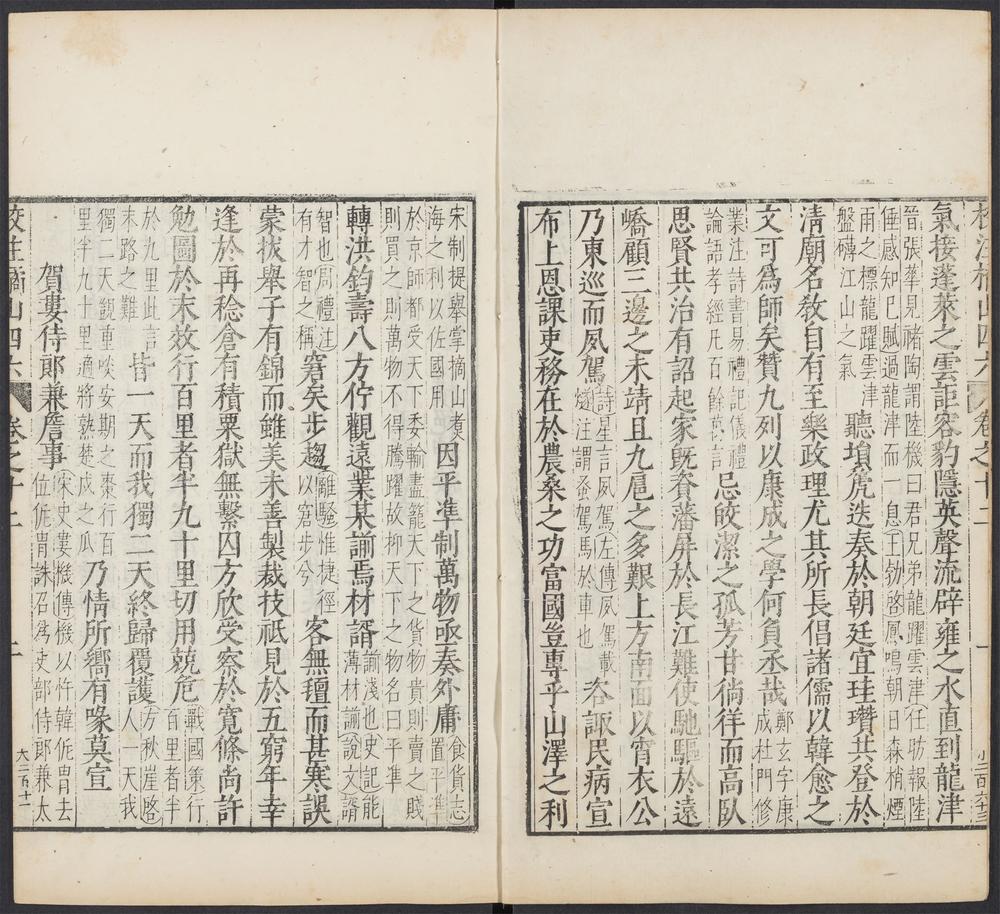 校注橘山四六 卷之十二 一 小二百六十三
氣接蓬萊之雲詎容豹隱英聲流辟雍之水直到龍津
晉張華見褚陶謂陸機曰君兄弟龍躍雲津任昉報陸
倕感知己賦過龍津而一息王勃啓鳳鳴朝日森梢煙
雨之標龍躍雲津
盤礴江山之氣
聽塤箎迭奏於朝廷宜珪瓚共登於
清廟名敎自有至樂政理尤其所長倡諸儒以韓愈之
文可爲師矣贊九列以康成之學何負丞哉
鄭玄字康
成杜門修
業注詩書易禮記儀禮
論語孝經凡百餘萬言
忌皎潔之孤芳甘徜徉而高臥
思賢共治有詔起家既賚藩屏於長江難使馳驅於遠
嶠顧三邊之未靖且九扈之多艱上方南面以宵衣公
乃東巡而夙駕
詩星言夙駕左傳夙駕載
燧注謂蚤駕馬於車也
咨諏民病宣
布上恩課吏務在於農桑之功富國豈專乎山澤之利
宋制提舉掌摘山煑
海之利以佐國用
因平準制萬物亟奏外庸
食貨志
置平準
於京師都受天下委輸盡籠天下之貨物貴則賣之賤
則買之則萬物不得騰躍故抑天下之物名曰平準
轉洪鈞壽八方佇觀遠業某謭焉材諝
謭淺也史記能
薄材謭說文諝
智也周禮注
有才智之稱
窘矣步趨
離騷惟捷徑
以窘步兮
客無氊而甚寒誤
蒙拔舉子有錦而雖美未善製裁技祗見於五窮年幸
逢於再稔倉有積粟獄無繫囚方欣受察於寬條尚許
勉圖於末效行百里者半九十里切用兢危
戰國策行
百里者半
於九里此言
末路之難
皆一天而我獨二天終歸覆護
方秋崖啓
人一天我
獨二天說重啖安期之棗行百
里半九十里適將熟楚戍之瓜
乃情所嚮有喙莫宣
賀婁侍郎兼詹事
宋史婁機傳機以忤韓侂冑去
位侂冑誅召爲吏部侍郎兼太
校注橘山四六 卷之十二 二 大二百十一